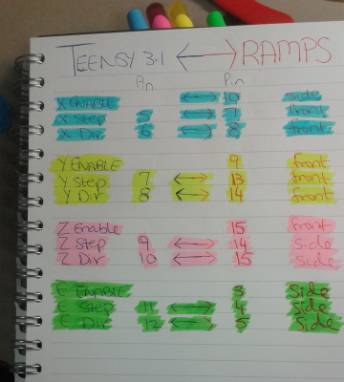 TEENSY 3.1 ⟷ RAMPS
Pin Pin
X ENABLE ⟷ 10 side
X Step 5 ⟷ 7 front
X Dir 6 ⟷ 8 front
Y ENABLE 9 front
Y Step 7 ⟷ 13 front
Y Dir 8 ⟷ 14 front
Z Enable 15 front
Z Step 9 ⟷ 14 side
Z Dir 10 ⟷ 15 side
E ENABLE 3 side
E Step 11 ⟷ 4 side
E Dir 12 ⟷ 5 side